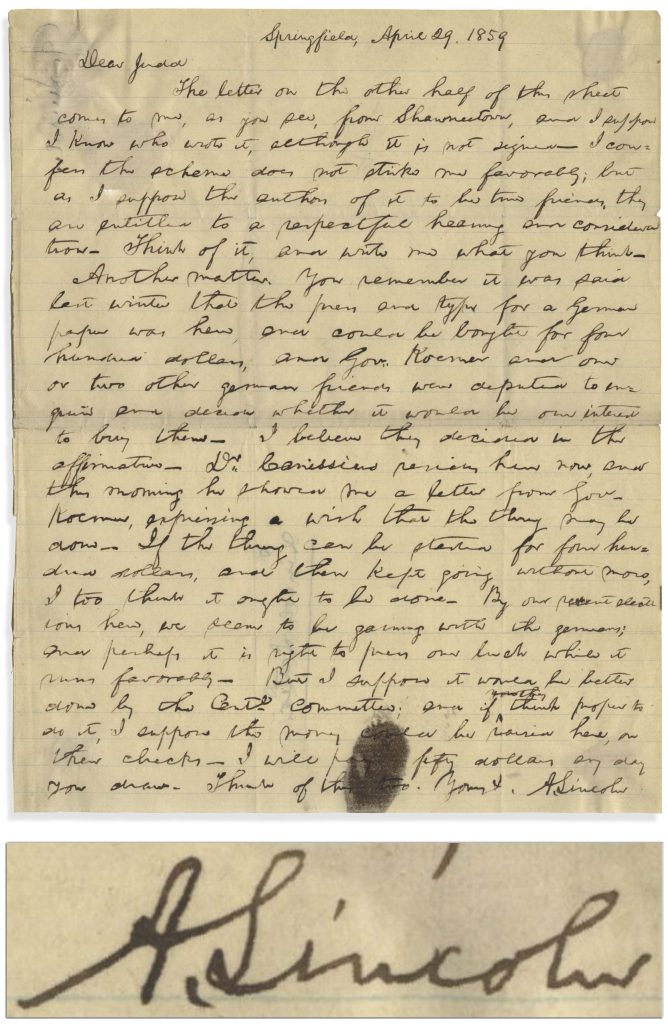 Springfield, April 29. 1859
Dear Judd
The letter on the other half of this sheet
comes to me, as you see, from Shawneetown, and I suppose
I know who wrote it, although it is not signed— I con=
fess the scheme does not strike me favorably; but
as I suppose the authors of it to be true friends, they
are entitled to a respectful hearing and considera
tion— Think of it, and write me what you think—
Another matter. You remember it was said
last winter that the press and type for a German
paper was here, and could be bought for four
hundred dollars; and Gov. Koerner and one
or two other german friends were deputed to en=
quire and decide whether it would be our interest
to buy them— I believe they decided in the
affirmative— Dr. Canissius resides here now, and
this morning he showed me a letter from Gov.
Koerner, expressing a wish that the thing may be
done— If the thing can be started for four hun=
dred dollars, and then kept going without more,
I too think it ought to be done— By our recent elect
ions here, we seem to be gaining with the germans;
and perhaps it is right to press our luck while it
runs favorably— But I suppose it would be better
done by the Centl. Committee; and if think proper to
do it, I suppose the money could be raised here, on
their checks— I will pay fifty dollars any day
you draw— Think of this too. Yours &. A. Lincoln
A. Lincoln